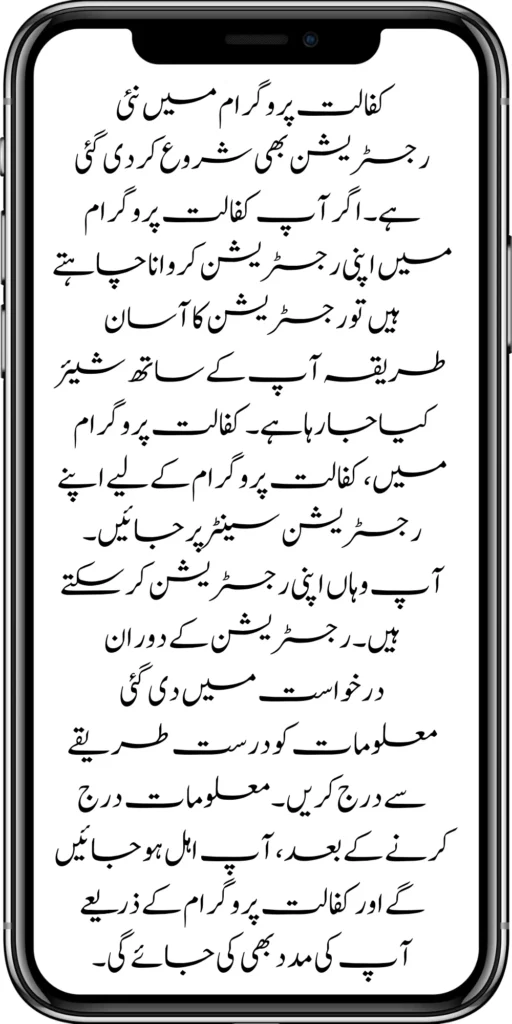 کفالت پروگرام میں نئی
رجسٹریشن بھی شروع کر دی گئی
ہے۔ اگر آپ کفالت پروگرام
میں اپنی رجسٹریشن کروانا چاہتے
ہیں تو رجسٹریشن کا آسان
طریقہ آپ کے ساتھ شیئر
کیا جا رہا ہے۔ کفالت پروگرام
میں، کفالت پروگرام کے لیے اپنے
رجسٹریشن سینٹر پر جائیں۔
آپ وہاں اپنی رجسٹریشن کر سکتے
ہیں۔ رجسٹریشن کے دوران
درخواست میں دی گئی
معلومات کو درست طریقے
سے درج کریں۔ معلومات درج
کرنے کے بعد، آپ اہل ہو جائیں
گے اور کفالت پروگرام کے ذریعے
آپ کی مدد بھی کی جائے گی۔